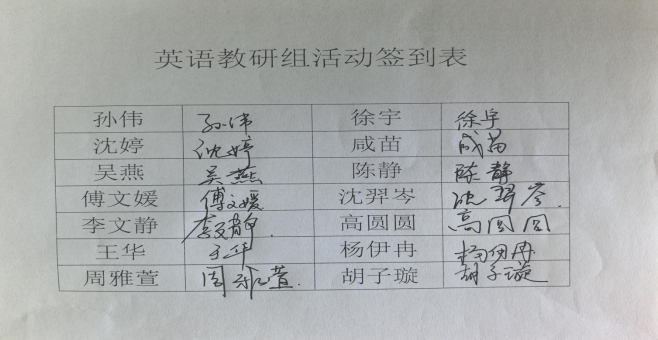 英语教研组活动签到表
孙伟 孙伟 徐宇 徐宇
沈婷 沈婷 咸苗 咸苗
吴燕 吴燕 陈静 陈静
傅文媛 傅文媛 沈羿岑 沈羿岑.
李文静 李文静. 高圆圆 高圆圆
王华 王华 杨伊冉 杨伊冉
周雅萱 周雅萱. 胡子璇 胡子璇